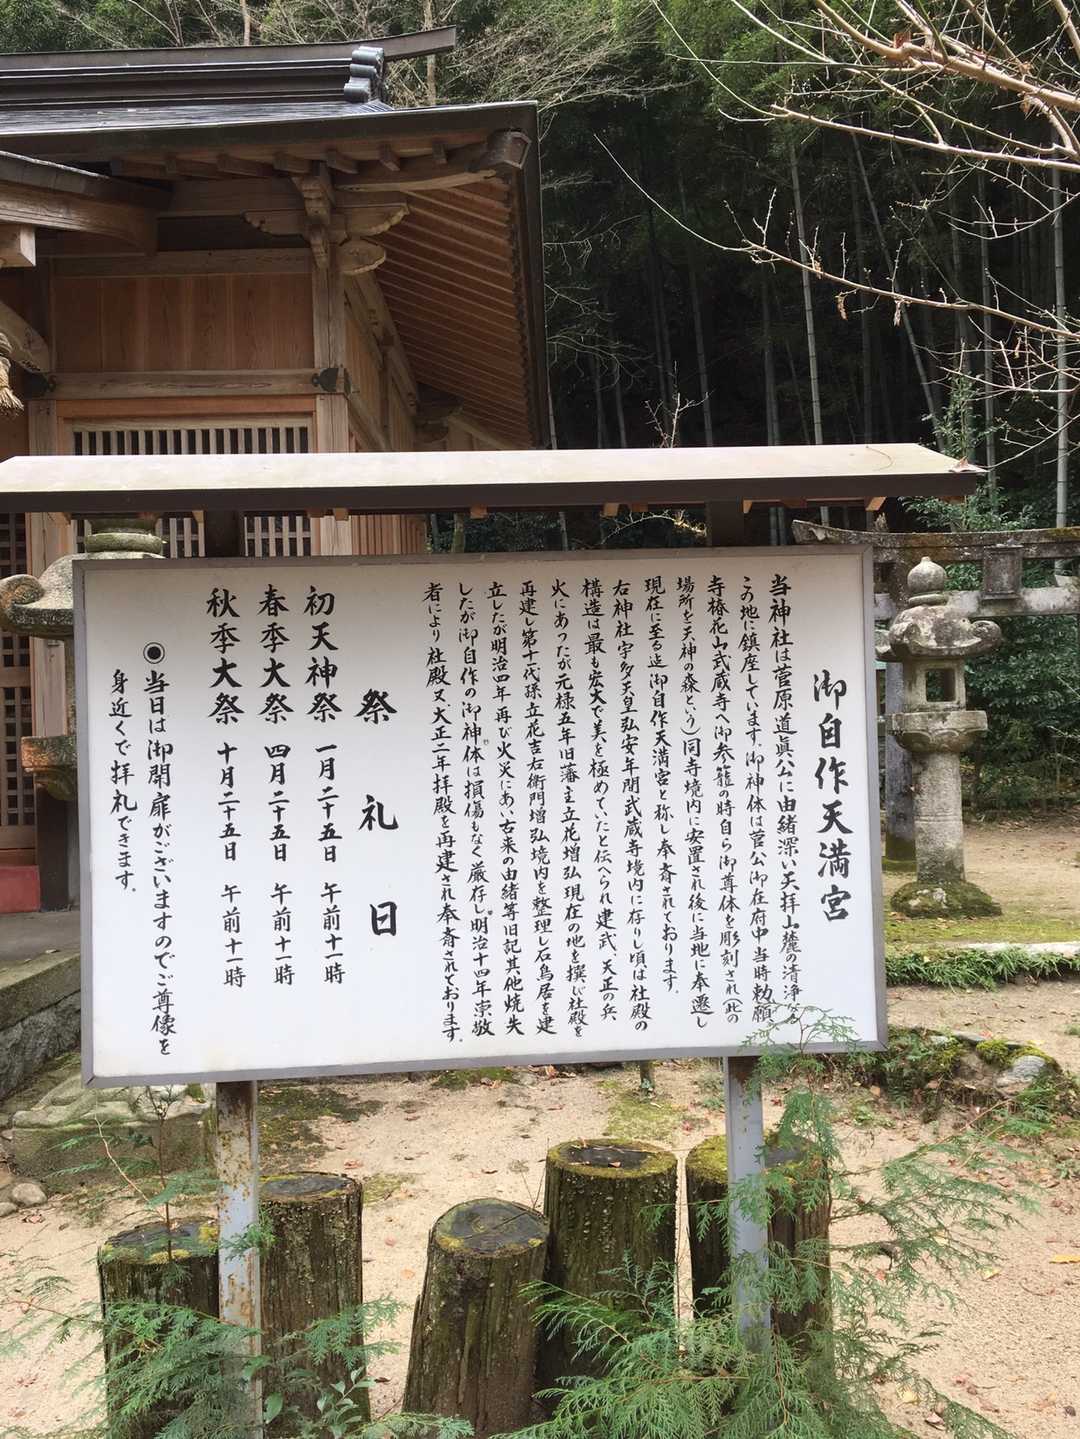 御自作天満宮
当神社は菅原道眞公に由緒深い天拝山麓の清浄なる
この地に鎮座しています。御神体は菅公御在府中 当時勅願
寺椿花山武蔵寺へ御参籠の時自ら御尊体を彫刻され(此の
場所を天神の森という)同寺境内に安置され後に当地に奉遷し
現在に至る迄御自作天満宮と称し奉斎されております。
右神社宇多天皇弘安年間武蔵寺境内に存りし頃は社殿の
構造は最も宏大で美を極めていたと伝へられ建武、天正の兵
火にあったが元禄五年旧藩主立花増弘現在の地を撰び社殿を
再建し第十代孫立花吉右衛門増弘境内を整理し石鳥居を建
立したが明治四年再び火災にあい古来の由緒等旧記其他焼失
したが御自作の御神体は損傷もなく厳存し明治十四年崇敬
者により社殿又、大正二年拝殿を再建され奉斎されております。
祭礼日
初天神祭 一月二十五日 午前十一時
春季大祭 四月二十五日 午前十一時
秋季大祭 十月二十五日 午前十一時
◉当日は御開扉がございますのでご尊像を
身近くで拝礼できます。